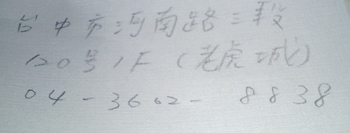 台中市河南路三段
120号1F(老虎城)
04-3602-8838